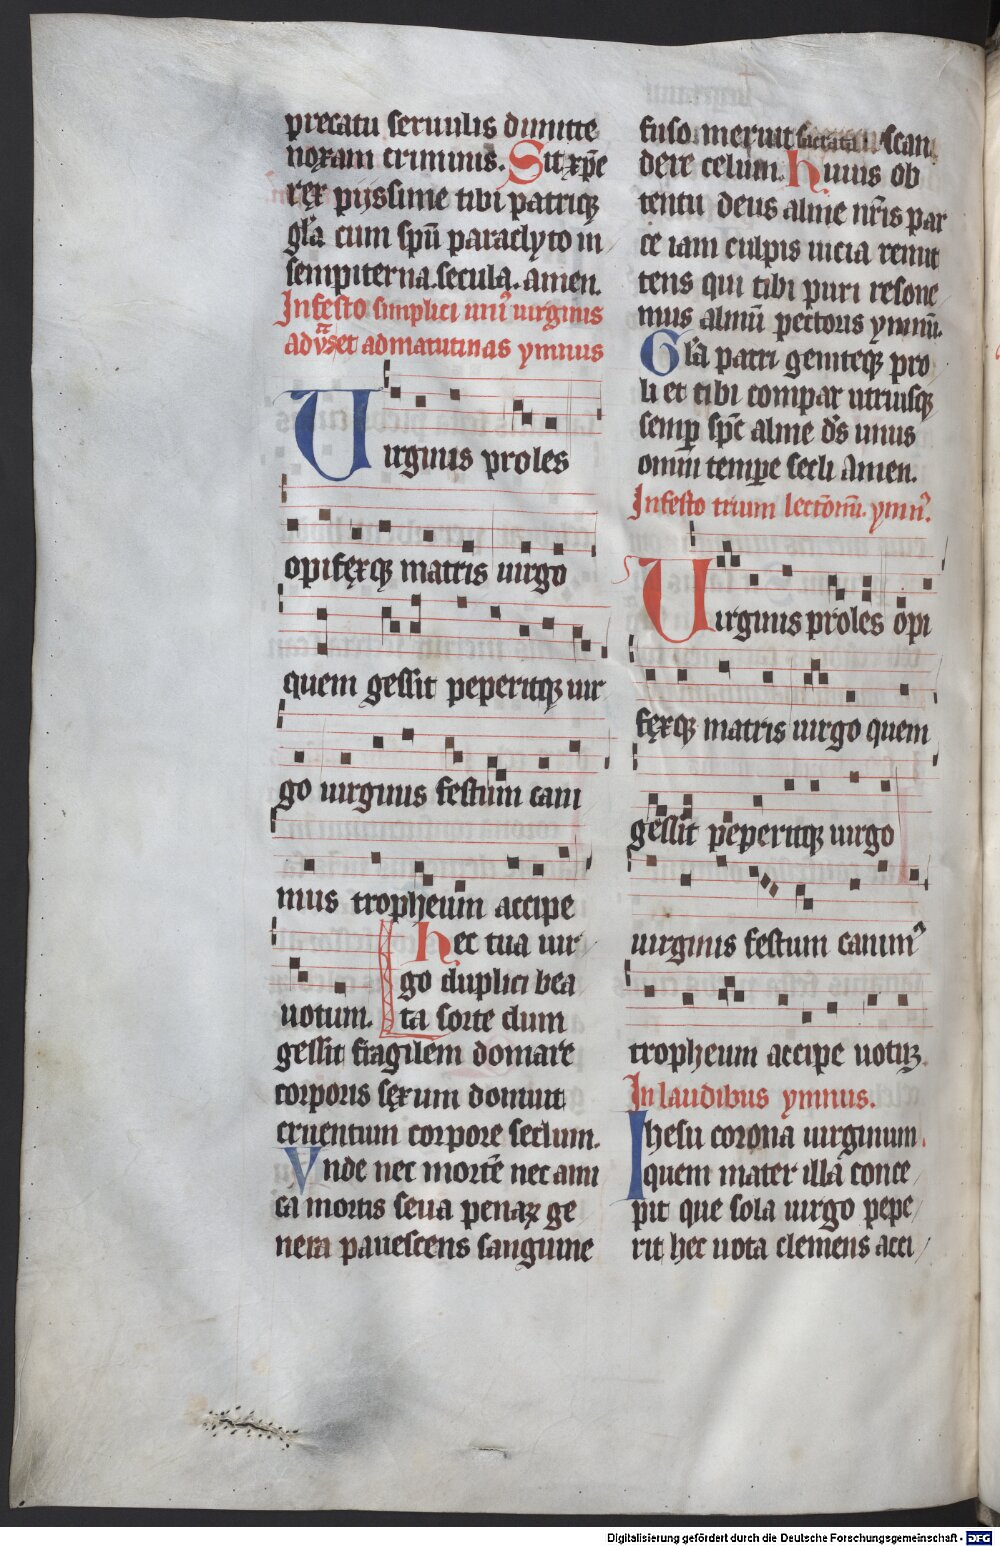 precatu seruulis dimitte
noxam criminis. Sit xp̄e
rex pijssime tibi patriqꝫ
gl̄a cum spū paraclyto in
sempiterna secula. amen.
In festo simplici uniꝰ uirginis
ad vꝰs et ad matutinas ymnus
Uirginis proles
opifexqꝫ matris uirgo
quem gessit peperitqꝫ uir
go uirginis festum cani
mus tropheum accipe
uotum. hec tua uir
go duplici bea
ta sorte dum
gessit fragilem domare
corporis sexum domuit
cruentum corpore seclum.
Vnde nec mortē nec ami
ca mortis seua penaꝝ ge
nera pauescens sanguine
fuso meruit sacrata scan
dere celum. huius ob
tentu deus alme nr̄is par
ce iam culpis uicia remit
tens qui tibi puri resone
mus almū pectoris ymnū.
Gl̄a patri geniteqꝫ pro
li et tibi compar utriusqꝫ
semp̱ sp̄c alme d̄s unus
omni temp̱e secli Amen.
In festo trium lectōnū. ymnꝰ.
Uirginis proles opi
fexqꝫ matris uirgo quem
gessit peperitqꝫ uirgo
uirginis festum canimꝰ
tropheum accipe uotuꝫ.
In laudibus ymnus.
Ihesu corona uirginum.
quem mater illā conce
pit que sola uirgo pepe
rit hec uota clemens acci
Digitalisierung gefördert durch die Deutsche Forschungsgemeinschaft - DFG